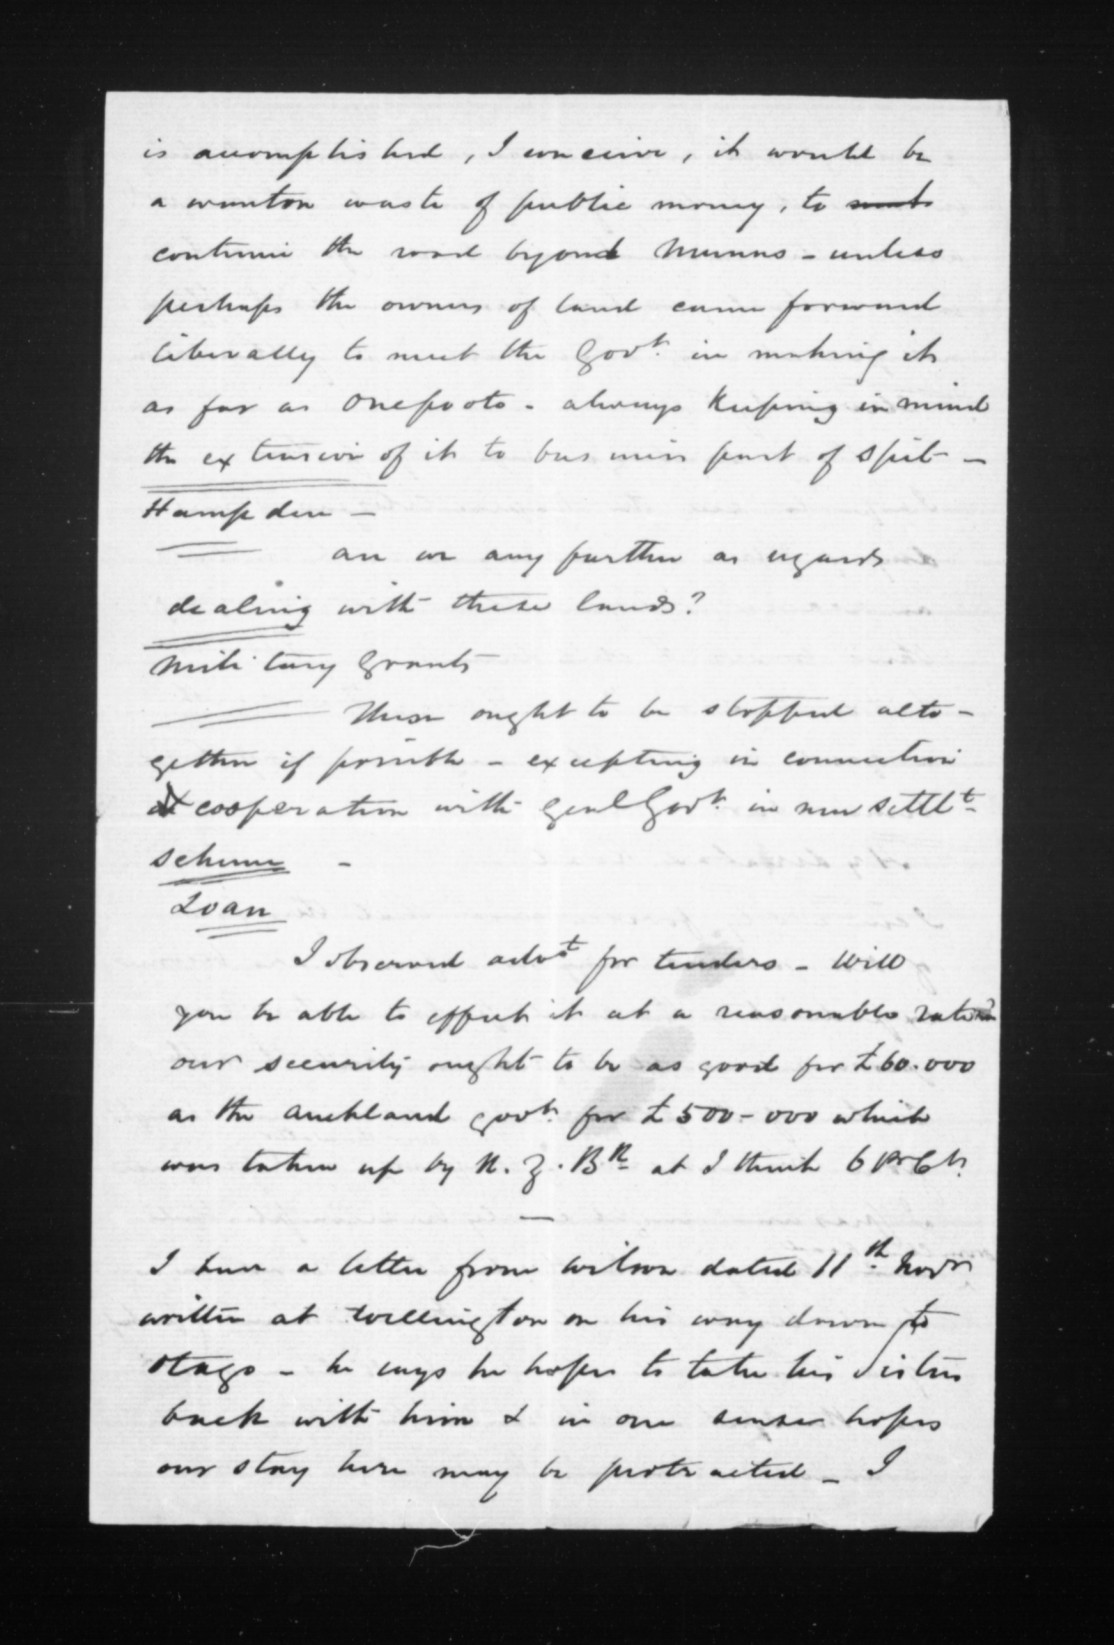 is accomplished, I conceive, it would be
a wanton waste of public money, to
continue the road beyond Munns - unless
perhaps the owners of land came forward
liberally to meet the Govt. in making it
as far as Onepoto - always keeping in mind
the extension of it to business part of Spit -
Hampden -
are we any further as regards
dealing with these lands?
Military Grants
These ought to be stopped alto-
gether if possible - excepting in connection
& cooperation with Genl Govt. in new settlt.
scheme -
Loan
I observed advt for tenders - Will
you be able to effect it at a reasonable rate?
our security ought to be as good for £60.000
as the Auckland Govt. for £500-000 which
was taken up by N. Z. Bk at I think 6 Pr Ct.
I have a letter from Wilson dated 11th. Novr
written at Wellington on his way down to
Otago - he says he hopes to take his Sisters
back with him & in one sense hopes
our stay here may be protracted - I